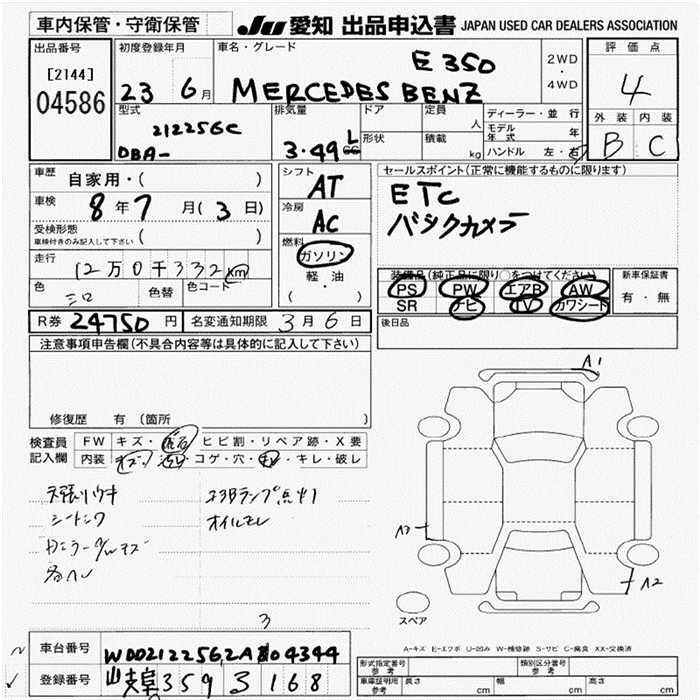 車内保管・守衛保管 JU 愛知 出品申込書 JAPAN USED CAR DEALERS ASSOCIATION
出品番号 初度登録年月 車名・グレード 評価点
[2144] 23 6月 E350 2WD・4WD 4
04586 MERCEDES BENZ
型式 排気量 ドア 定員 人 ディーラー・並行 外装 内装
212256C 形状 積載 kg モデル年式 年 B C
DBA- 3.49 L cc ハンドル 左・右
車歴 自家用・( ) シフト AT セールスポイント(正常に機能するものに限ります)
車検 8年7月(3日) 冷房 AC ETC
受検形態 ( ) バックカメラ
車検付きのみ記入して下さい 燃料
走行 12万0千332km ガソリン 装備品(純正品に限り○をつけてください) 新車保証書
色 色替 色コード 軽・油 PS PW エアB AW 有・無
シロ ( ・ ) SR ナビ TV カワシート
R券 24750円 名変通知期限 3月6日 後日品
注意事項申告欄(不具合内容等は具体的に記入して下さい)
A1
修復歴 有(箇所
検査員 FW キズ・飛石・ヒビ割・リペア跡・X要
記入欄 内装 キズ・ ・コゲ・穴・ ・キレ・破レ
天張リウキ エアBランプ点灯
シート オイルモレ
A2
スペア
3
A-キズ E-エクボ U-凹み W-補修跡 S-サビ C-腐食 XX-交換済
車台番号 WDD2122562A 04344 形式指定番号 参考 類別区分番号 参考
登録番号 岐阜 359 3 168 車庫証明用 参考 長さ cm 幅 cm 高さ cm